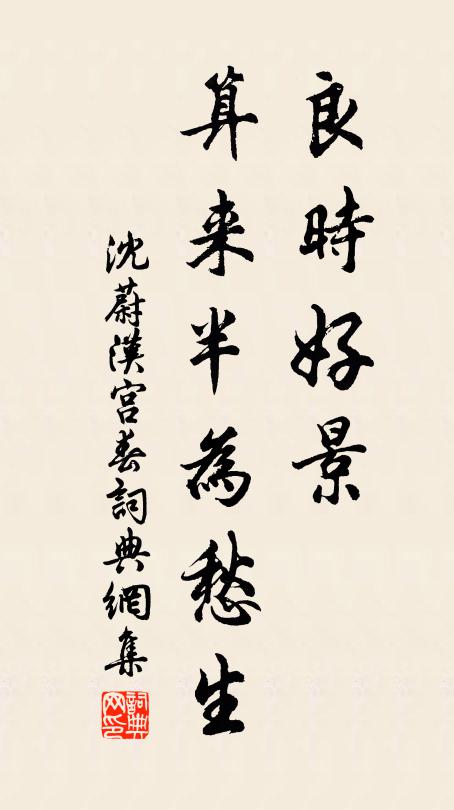 良時好景
算来半為愁生
沈蔚漢宮春詞典網集
詞典网印